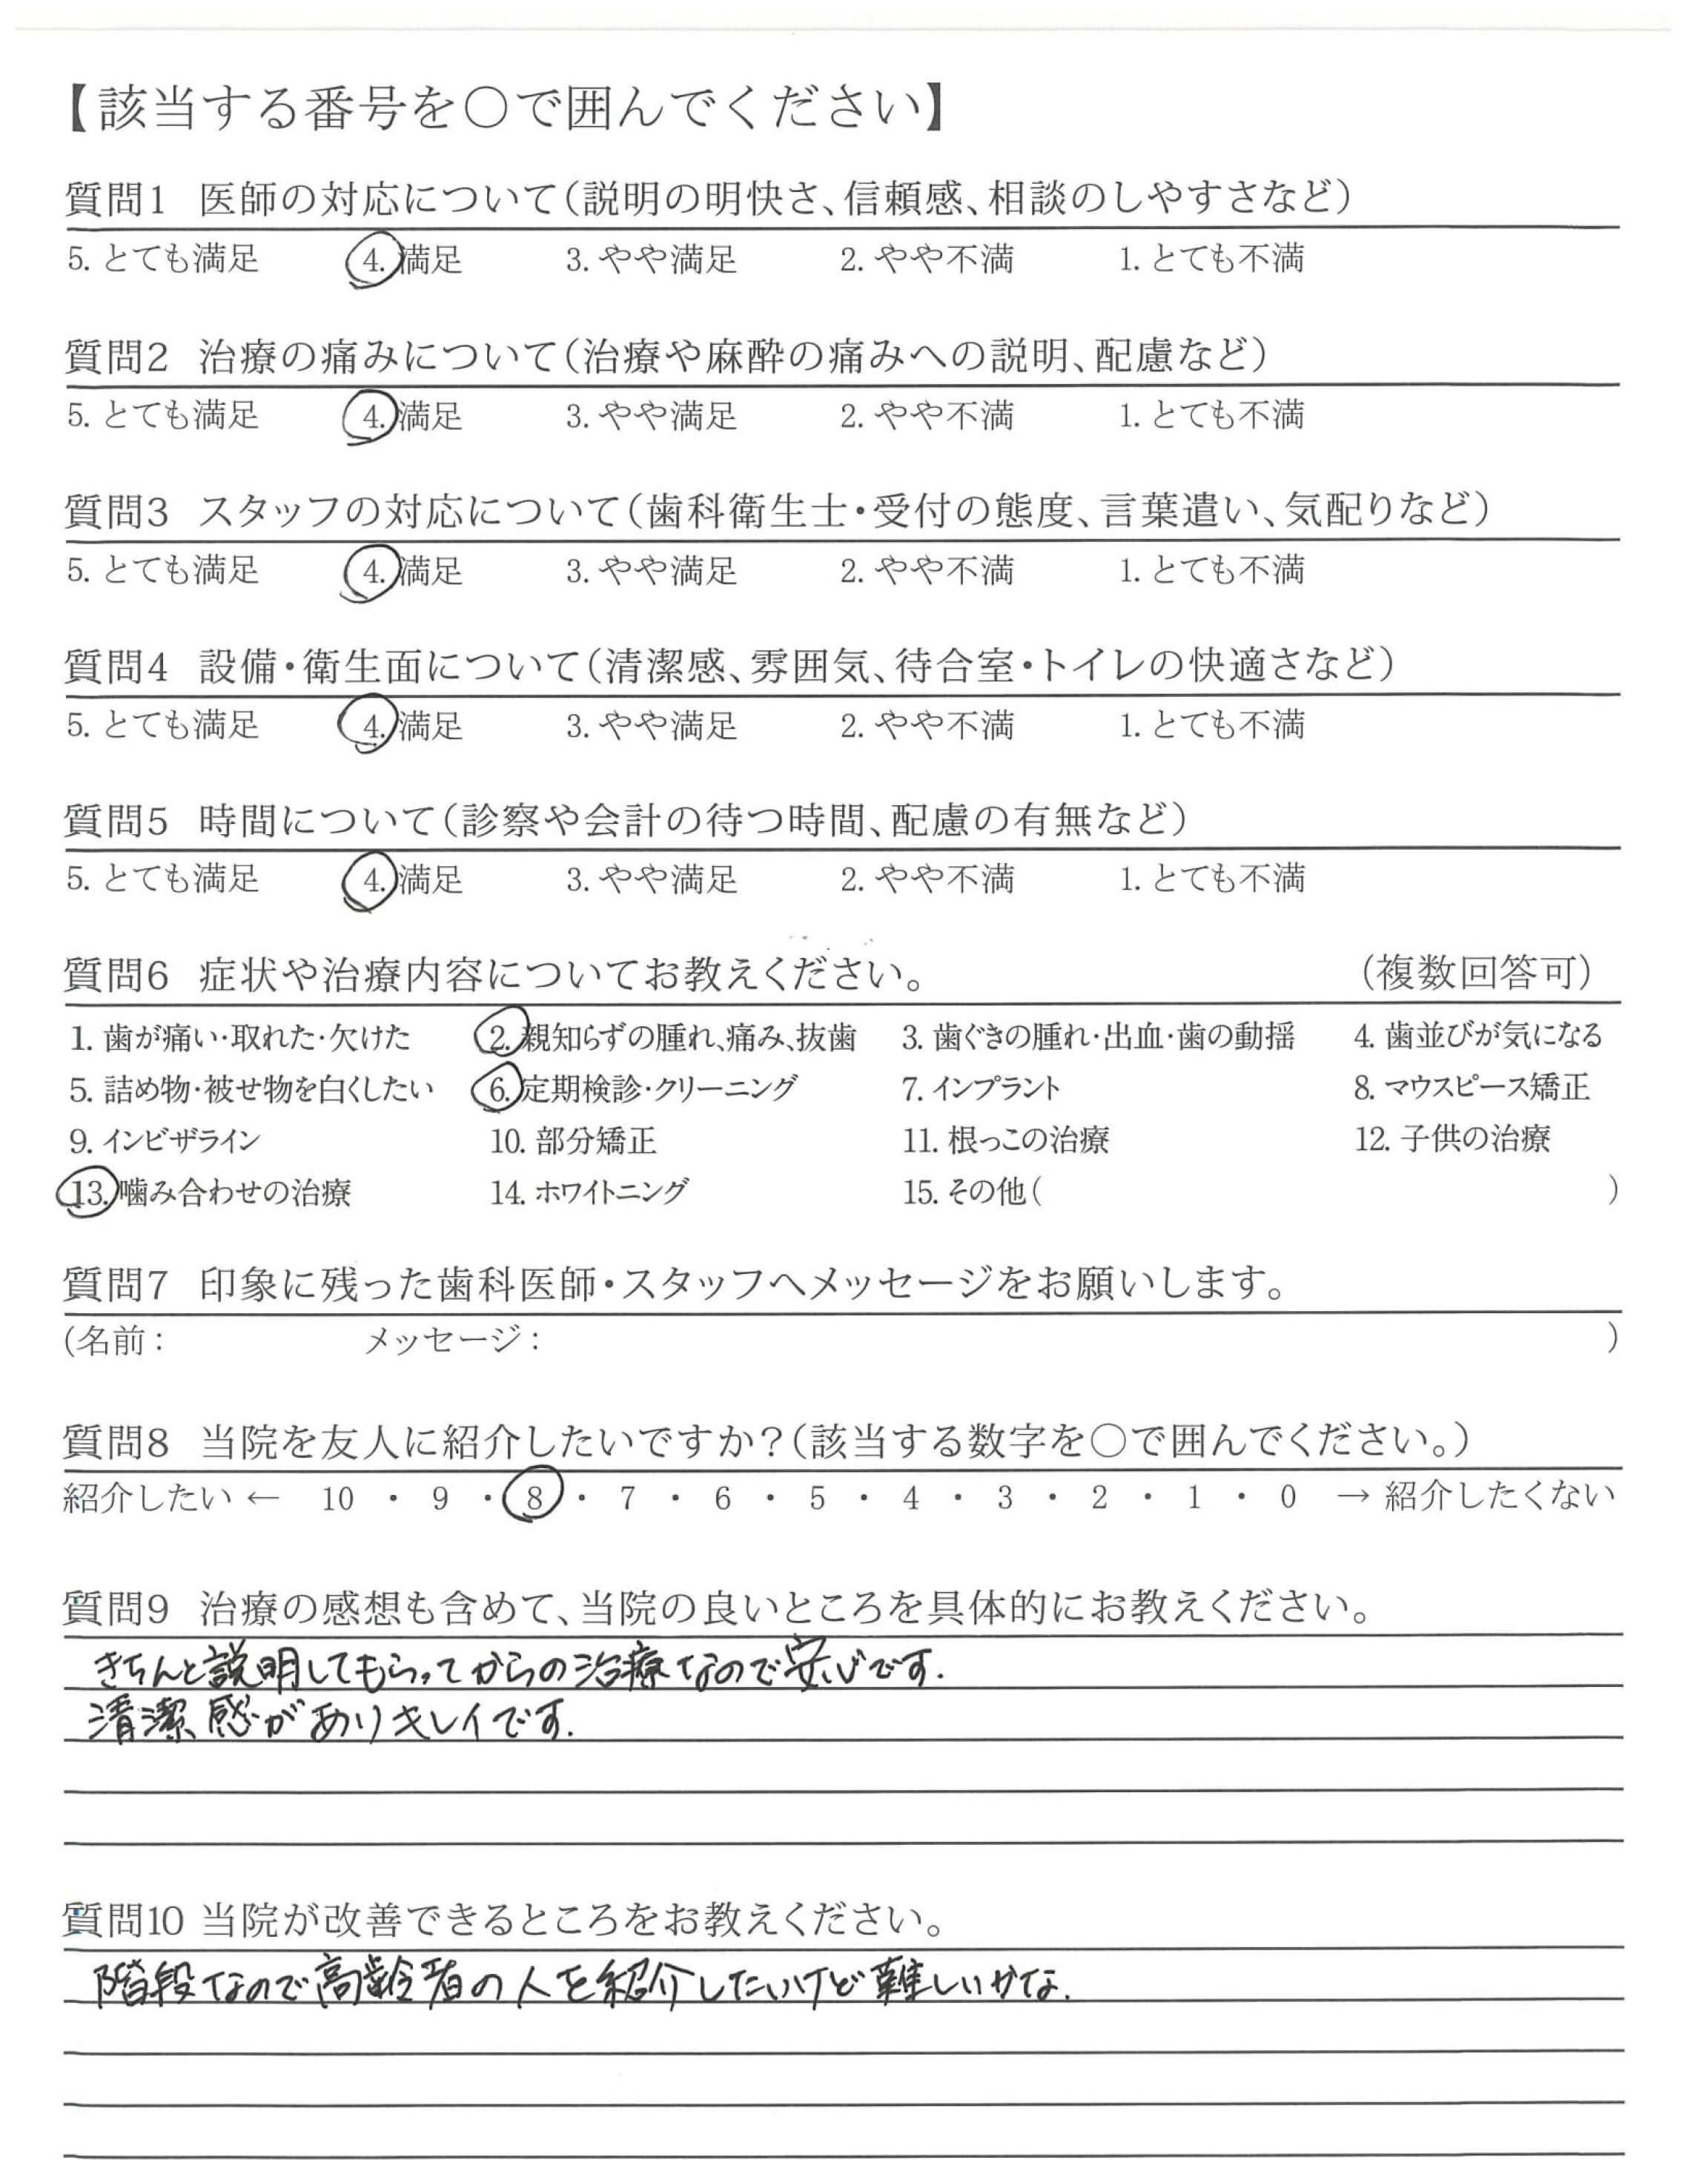 【該当する番号を〇で囲んでください】
質問1 医師の対応について(説明の明快さ、信頼感、相談のしやすさなど)
5. とても満足 4. 満足 3. やや満足 2. やや不満 1. とても不満
質問2 治療の痛みについて(治療や麻酔の痛みへの説明、配慮など)
5. とても満足 4. 満足 3. やや満足 2. やや不満 1. とても不満
質問3 スタッフの対応について(歯科衛生士・受付の態度、言葉遣い、気配りなど)
5. とても満足 4. 満足 3. やや満足 2. やや不満 1. とても不満
質問4 設備・衛生面について(清潔感、雰囲気、待合室・トイレの快適さなど)
5. とても満足 4. 満足 3. やや満足 2. やや不満 1. とても不満
質問5 時間について(診察や会計の待つ時間、配慮の有無など)
5. とても満足 4. 満足 3. やや満足 2. やや不満 1. とても不満
質問6 症状や治療内容についてお教えください。 (複数回答可)
1. 歯が痛い・取れた・欠けた 2. 親知らずの腫れ、痛み、抜歯 3. 歯ぐきの腫れ・出血・歯の動揺 4. 歯並びが気になる
5. 詰め物・被せ物を白くしたい 6. 定期検診・クリーニング 7. インプラント 8. マウスピース矯正
9. インビザライン 10. 部分矯正 11. 根っこの治療 12. 子供の治療
13. 噛み合わせの治療 14. ホワイトニング 15. その他( )
質問7 印象に残った歯科医師・スタッフへメッセージをお願いします。
(名前: メッセージ: )
質問8 当院を友人に紹介したいですか?(該当する数字を〇で囲んでください。)
紹介したい ← 10 ・ 9 ・ 8 ・ 7 ・ 6 ・ 5 ・ 4 ・ 3 ・ 2 ・ 1 ・ 0 → 紹介したくない
質問9 治療の感想も含めて、当院の良いところを具体的にお教えください。
きちんと説明してもらってからの治療なので安心です.
清潔感がありキレイです.
質問10 当院が改善できるところをお教えください。
階段なので高齢者の人を紹介したいけど難しいかな.